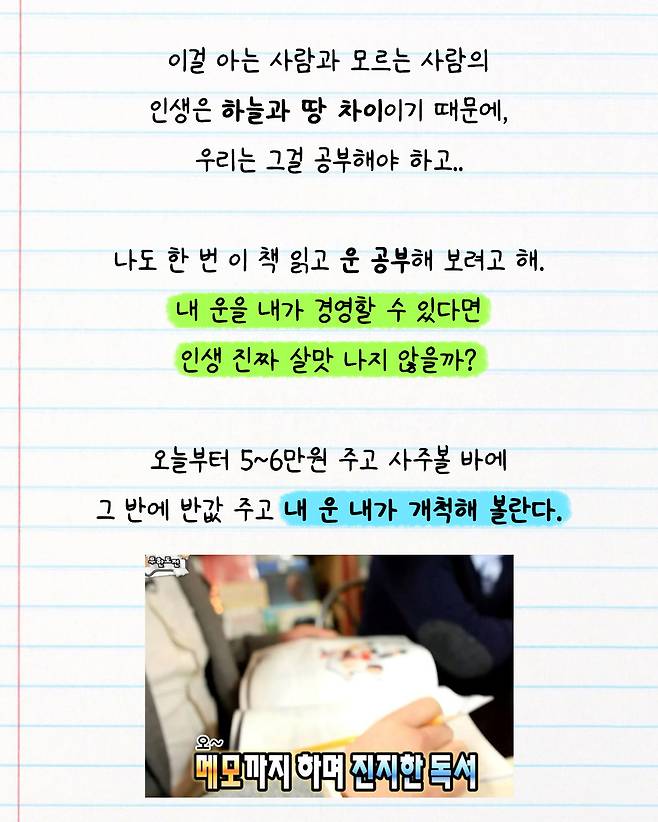 이걸 아는 사람과 모르는 사람의
인생은 하늘과 땅 차이이기 때문에,
우리는 그걸 공부해야 하고..
나도 한 번 이 책 읽고 운 공부해 보려고 해.
내 운을 내가 경영할 수 있다면
인생 진짜 살맛 나지 않을까?
오늘부터 5~6만원 주고 사주볼 바에
그 반에 반값 주고 내 운 내가 개척해 볼란다.
무한도전
오~
메모까지 하며 진지한 독서